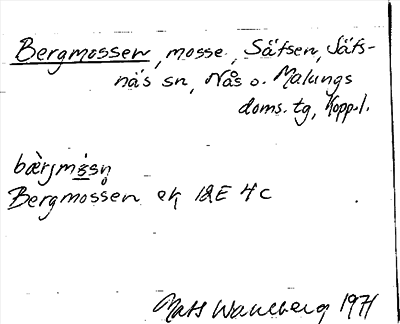 Bergmossen, mosse, Säfsen, Säfs-
näs sn, Nås o. Malungs
doms. tg, Kopp. l.
Bergmossen ek 12E 4c
Mats Wahlberg 1971